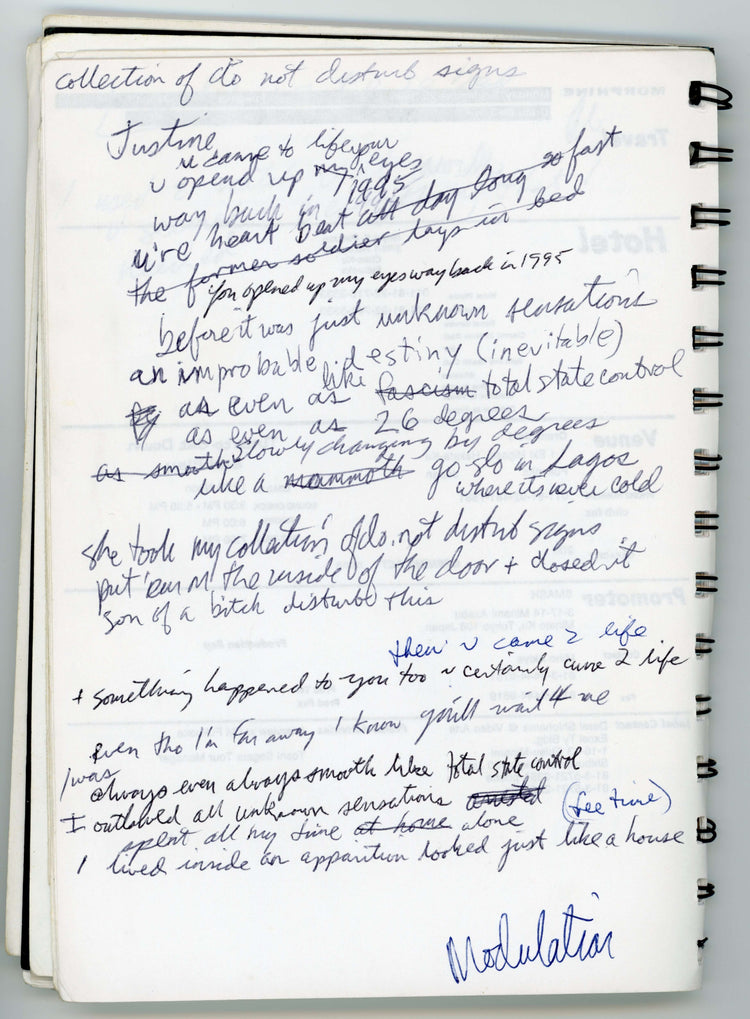 collection of do not disturb signs
Justine
u came to life your
u opend up my eyes
way back in 1995
u're heart beat all day long so fast
the former soldier lays in bed
You opened up my eyes way back in 1995
before it was just unknown sensations
an improbable destiny (inevitable)
like
as even as fascism total state control
as even as 26 degrees
as smooth slowly changing by degrees
like a mammoth go slo in Lagos
where its never cold
she took my collection of do not disturb signs
put 'em on the inside of the door + closed it
son of a bitch disturb this
then u came 2 life
+ something happened to you too u certainly came 2 life
Even tho I'm far away I know you'll wait 4 me
I was
always even always smooth like total state control
I outlawed all unknown sensations (see time)
spent all my time at home alone
I lived inside an apparition looked just like a house
Modulation
MORPHINE
Travel
Hotel
Venue
Promoter